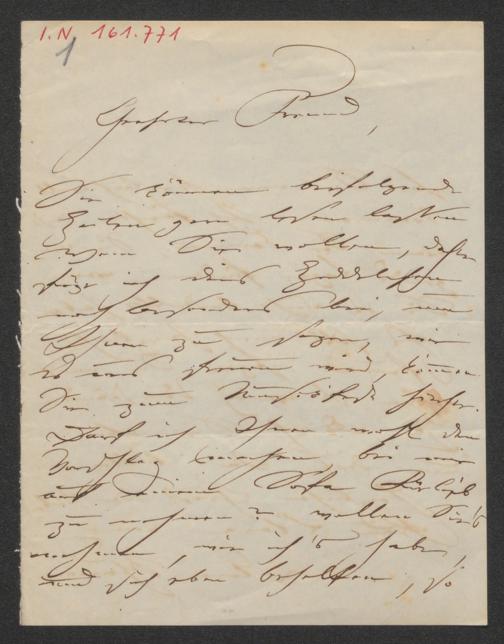 I.N. 161.771
1
Geehrter Freund,
Sie können beifolgende
Zeilen gern lesen lassen
wem Sie wollen, daher
füge ich dies Zettelchen
noch besonders bei, um
Ihnen zu sagen, wie
es uns freuen wird, können
Sie zum Musikfeste hierher.
Darf ich Ihnen wohl den
Vorschlag machen, bei mir
auf meinem Sopha
zu nehmen? wollen Sie's
nehmen, wie ich's habe,
und sich eben behelfen, so